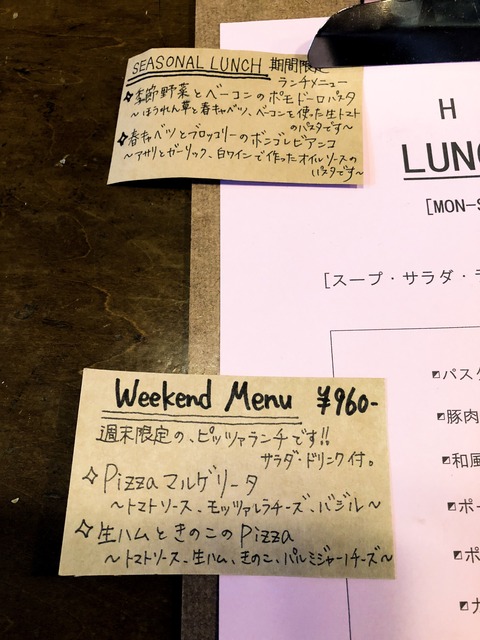 SEASONAL LUNCH 期間限定
ランチメニュー
季節野菜とベーコンのポモドーロパスタ
〜ほうれん草と春キャベツ、ベーコンを使った生トマト
のパスタです〜
春キャベツとブロッコリーのボンゴレビアンコ
〜アサリとガーリック、白ワインで作ったオイルソースの
パスタです〜
H
LUNC
[MON-S
[スープ・サラダ・
パスタ
豚肉
和風
ポー
ポ
Weekend Menu ¥960-
週末限定の、ピッツァランチです!!
サラダ・ドリンク付。
Pizza マルゲリータ
〜トマトソース、モッツァレラチーズ、バジル〜
生ハムときのこのPizza
〜トマトソース、生ハム、きのこ、パルミジャーノチーズ〜